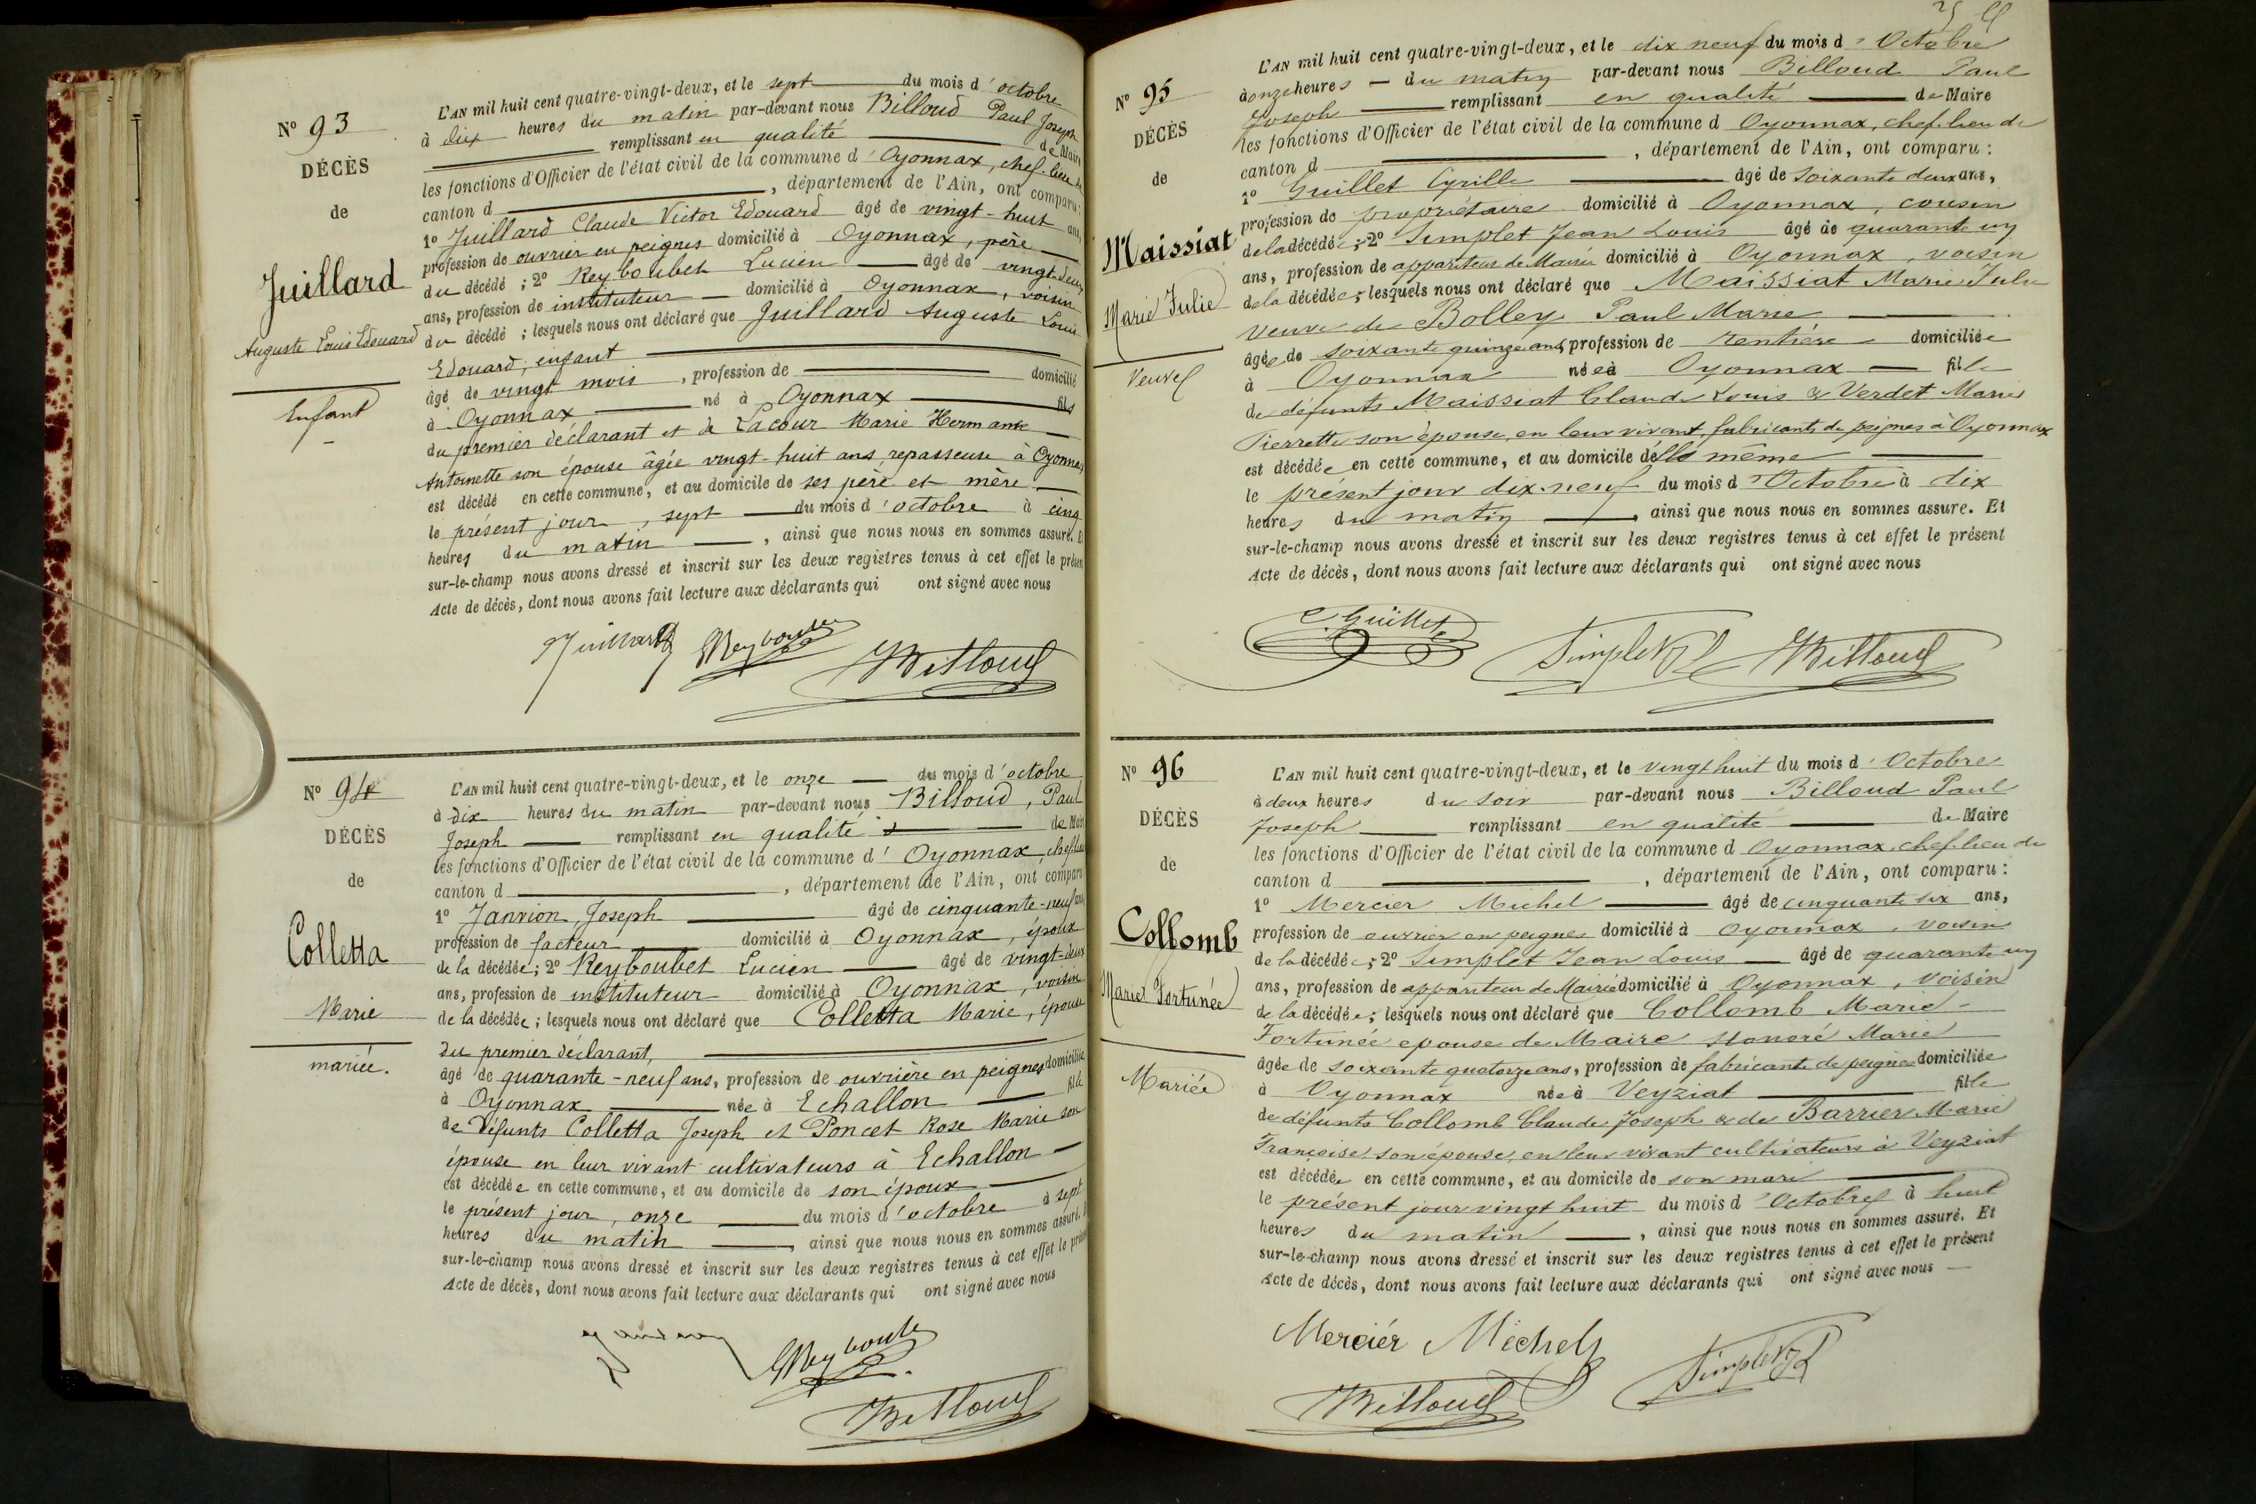 N° 93
DÉCÈS
de
Juillard
Auguste Louis Edouard
Enfant
L'AN mil huit cent quatre-vingt-deux, et le sept du mois d'octobre
à dix heures du matin par-devant nous Billoud Paul Joseph
remplissant en qualité de Maire
les fonctions d'Officier de l'état civil de la commune d'Oyonnax, chef-lieu de
canton d , département de l'Ain, ont comparu :
1° Juillard Claude Victor Edouard âgé de vingt-huit ans,
profession de ouvrier en peignes domicilié à Oyonnax, père
du décédé ; 2° Reyboubet Lucien âgé de vingt-deux
ans, profession de instituteur domicilié à Oyonnax, voisin
du décédé ; lesquels nous ont déclaré que Juillard Auguste Louis
Edouard, enfant
âgé de vingt mois , profession de domicilié
à Oyonnax né à Oyonnax fils
du premier déclarant et de Lacour Marie Hermance
Antoinette son épouse âgée vingt-huit ans repasseuse à Oyonnax
est décédé en cette commune, et au domicile de ses père et mère
le présent jour, sept du mois d'octobre à cinq
heures du matin , ainsi que nous nous en sommes assuré. Et
sur-le-champ nous avons dressé et inscrit sur les deux registres tenus à cet effet le présent
Acte de décès, dont nous avons fait lecture aux déclarants qui ont signé avec nous
Juillard Reyboubet
Billoud
N° 94
DÉCÈS
de
Colletta
Marie
mariée.
L'AN mil huit cent quatre-vingt-deux, et le onze du mois d'octobre
à dix heures du matin par-devant nous Billoud, Paul
Joseph remplissant en qualité de Maire
les fonctions d'Officier de l'état civil de la commune d'Oyonnax, chef-lieu
canton d , département de l'Ain, ont comparu
1° Janrion Joseph âgé de cinquante-neuf ans
profession de facteur domicilié à Oyonnax, époux
de la décédée ; 2° Reyboubet Lucien âgé de vingt-deux
ans, profession de instituteur domicilié à Oyonnax, voisin
de la décédée ; lesquels nous ont déclaré que Colletta Marie, épouse
du premier déclarant,
âgé de quarante-neuf ans, profession de ouvrière en peignes domiciliée
à Oyonnax née à Echallon fille
de défunts Colletta Joseph et Poncet Rose Marie son
épouse en leur vivant cultivateurs à Echallon
est décédée en cette commune, et au domicile de son époux
le présent jour, onze du mois d'octobre à sept
heures du matin , ainsi que nous nous en sommes assuré.
sur-le-champ nous avons dressé et inscrit sur les deux registres tenus à cet effet le présent
Acte de décès, dont nous avons fait lecture aux déclarants qui ont signé avec nous
Reyboubet
Billoud
N° 95
DÉCÈS
de
Maissiat
Marie Julie
Veuve
L'AN mil huit cent quatre-vingt-deux, et le dix neuf du mois d'Octobre
à onze heures du matin par-devant nous Billoud Paul
Joseph remplissant en qualité de Maire
les fonctions d'Officier de l'état civil de la commune d Oyonnax, chef-lieu de
canton d , département de l'Ain, ont comparu :
1° Guillet Cyrille âgé de soixante deux ans,
profession de propriétaire domicilié à Oyonnax, cousin
de la décédée ; 2° Simplet Jean Louis âgé de quarante un
ans, profession de appariteur de Mairie domicilié à Oyonnax, voisin
de la décédée ; lesquels nous ont déclaré que Maissiat Marie Julie
veuve de Bolley Paul Marie
âgée de soixante quinze ans, profession de rentière domiciliée
à Oyonnax née à Oyonnax fille
de défunts Maissiat Claude Louis & Verdet Marie
Pierrette son épouse, en leur vivant fabricants de peignes à Oyonnax
est décédée en cette commune, et au domicile d'elle même
le présent jour dix-neuf du mois d'Octobre à dix
heures du matin , ainsi que nous nous en sommes assuré. Et
sur-le-champ nous avons dressé et inscrit sur les deux registres tenus à cet effet le présent
Acte de décès, dont nous avons fait lecture aux déclarants qui ont signé avec nous
C. Guillet
Simplet JL Billoud
N° 96
DÉCÈS
de
Collomb
Marie Fortunée
Mariée
L'AN mil huit cent quatre-vingt-deux, et le vingt huit du mois d'Octobre
à deux heures du soir par-devant nous Billoud Paul
Joseph remplissant en qualité de Maire
les fonctions d'Officier de l'état civil de la commune d Oyonnax, chef-lieu de
canton d , département de l'Ain, ont comparu :
1° Mercier Michel âgé de cinquante six ans,
profession de ouvrier en peignes domicilié à Oyonnax, voisin
de la décédée ; 2° Simplet Jean Louis âgé de quarante un
ans, profession de appariteur de Mairie domicilié à Oyonnax, voisin
de la décédée ; lesquels nous ont déclaré que Collomb Marie-
Fortunée épouse de Maire Honoré Marie
âgée de soixante quatorze ans, profession de fabricante de peignes domiciliée
à Oyonnax née à Veyziat fille
de défunts Collomb Claude Joseph & de Barrier Marie
Françoise son épouse, en leur vivant cultivateurs à Veyziat
est décédée en cette commune, et au domicile de son mari
le présent jour vingt huit du mois d'Octobre à huit
heures du matin , ainsi que nous nous en sommes assuré. Et
sur-le-champ nous avons dressé et inscrit sur les deux registres tenus à cet effet le présent
Acte de décès, dont nous avons fait lecture aux déclarants qui ont signé avec nous
Merciér Michel
Simplet JL
Billoud